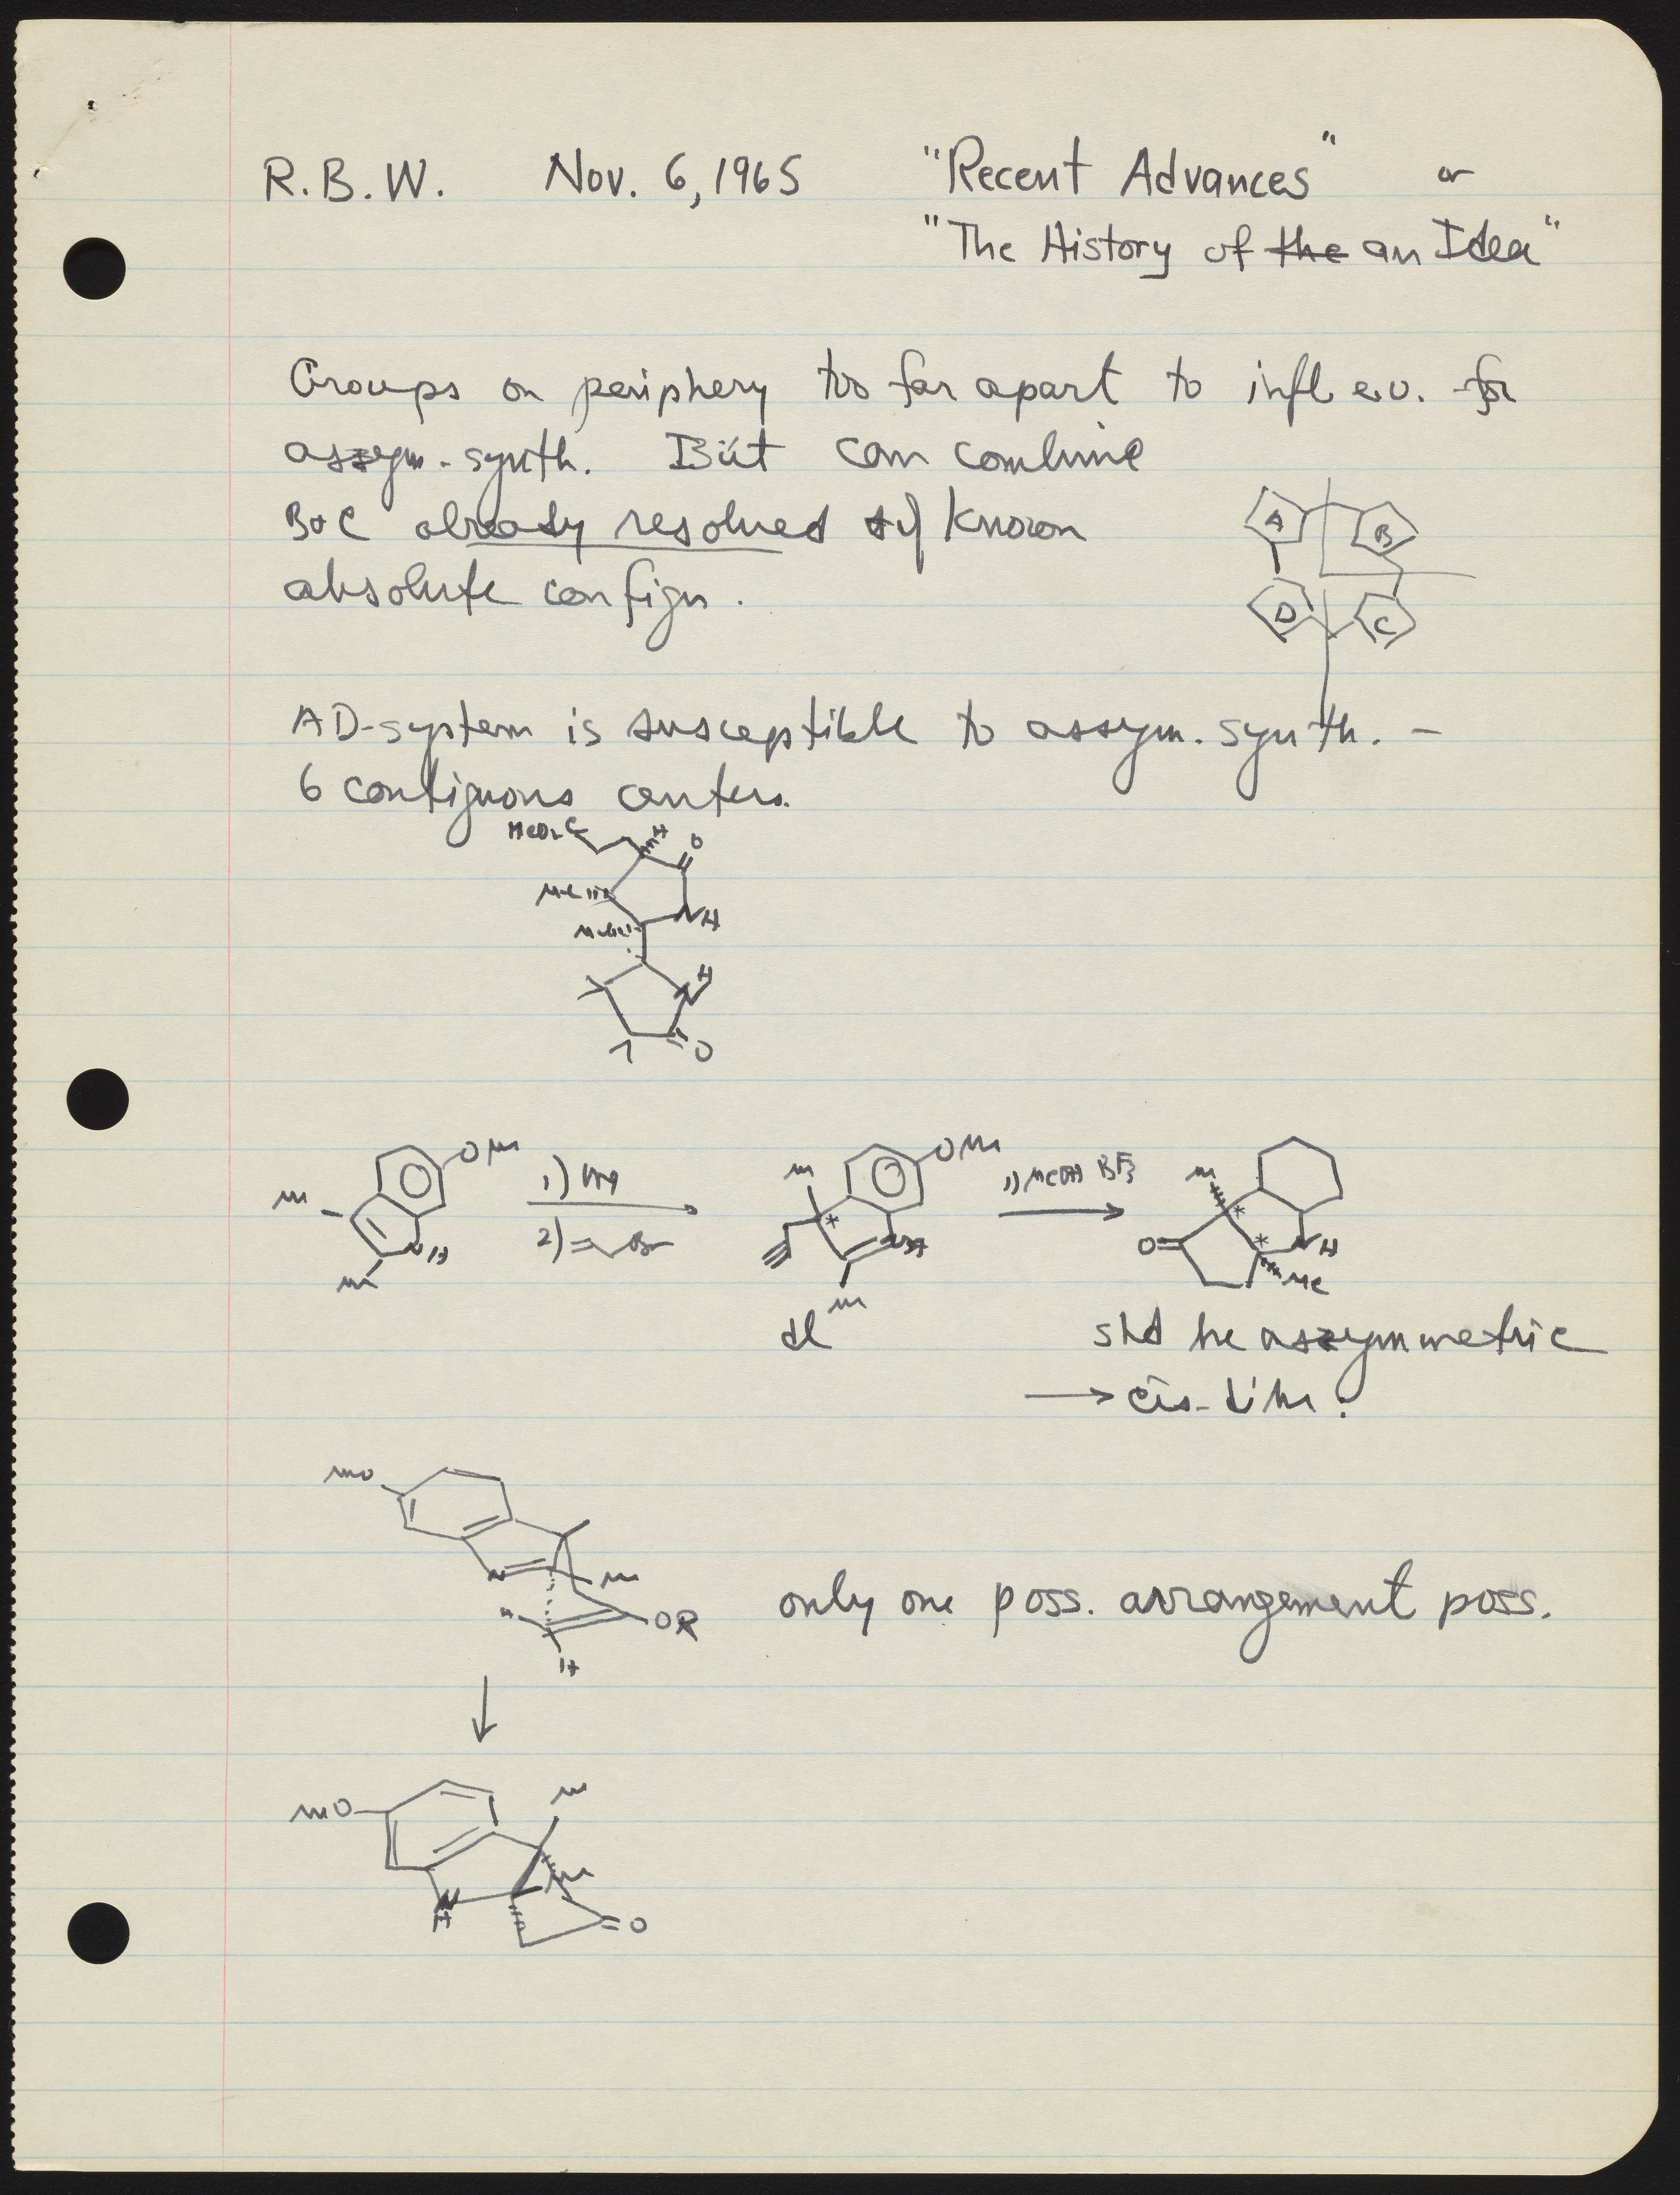 R.B.W. Nov. 6, 1965 "Recent Advances" or
"The History of the an Idea"
Groups on periphery too far apart to infl e.o. for
assym. synth. But can combine
B+C already resolved of known
absolute config.
A B
D C
AD-system is susceptible to assym. synth. –
6 contiguous centers.
MeO₂C H O
Me
Me NH
H
N
O
OMe 1) OMe 1) MeOH BF3 Me
Me 2) Br Me O N H
N H Me Me
Me
dl shd be assymmetric
→ cis-dihn.
MeO
N Me
OR only one poss. arrangement poss.
H
↓
MeO Me
Me
N
H O